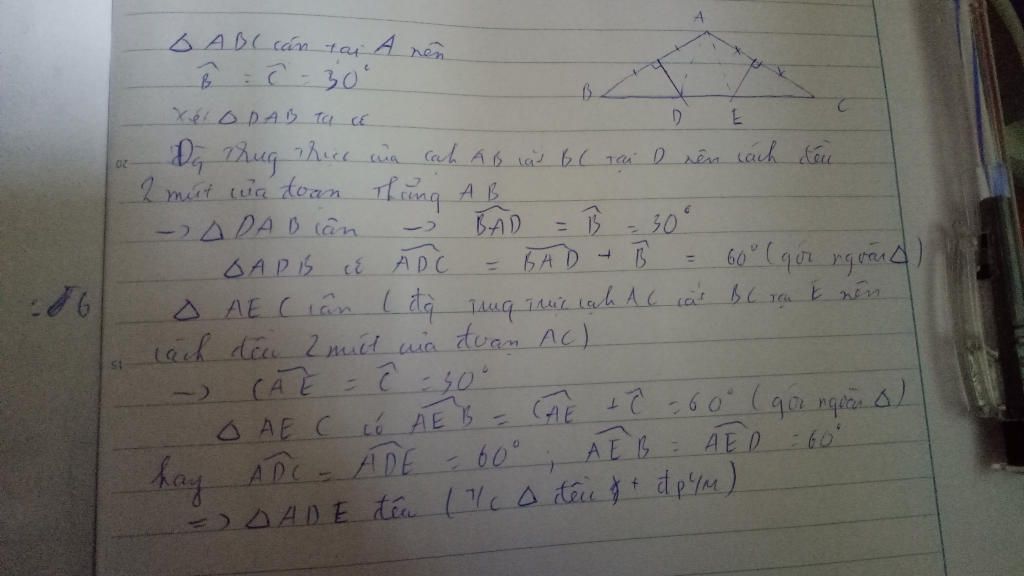 A
△ ABC cân tại A nên
B̂ = Ĉ = 30°
B
C
D
E
Xét △ DAB ta có
20
Đg trung trực của cạnh AB cắt BC tại D nên cách đều
2 mút của đoạn thẳng AB
→ △ DAB cân → BAD̂ = B̂ = 30°
△ ADB có ADĈ = BAD̂ + B̂ = 60° (góc ngoài △)
△ AEC cân ( đg trung trực cạnh AC cắt BC tại E nên
15
cách đều 2 mút của đoạn AC)
→ CAÊ = Ĉ = 30°
△ AEC có AEB̂ = CAÊ + Ĉ = 60° (góc ngoài △)
hay ADĈ = ADÊ = 60° ; AEB̂ = AED̂ = 60°
=> △ ADE đều ( T/c △ đều + đpc/m)